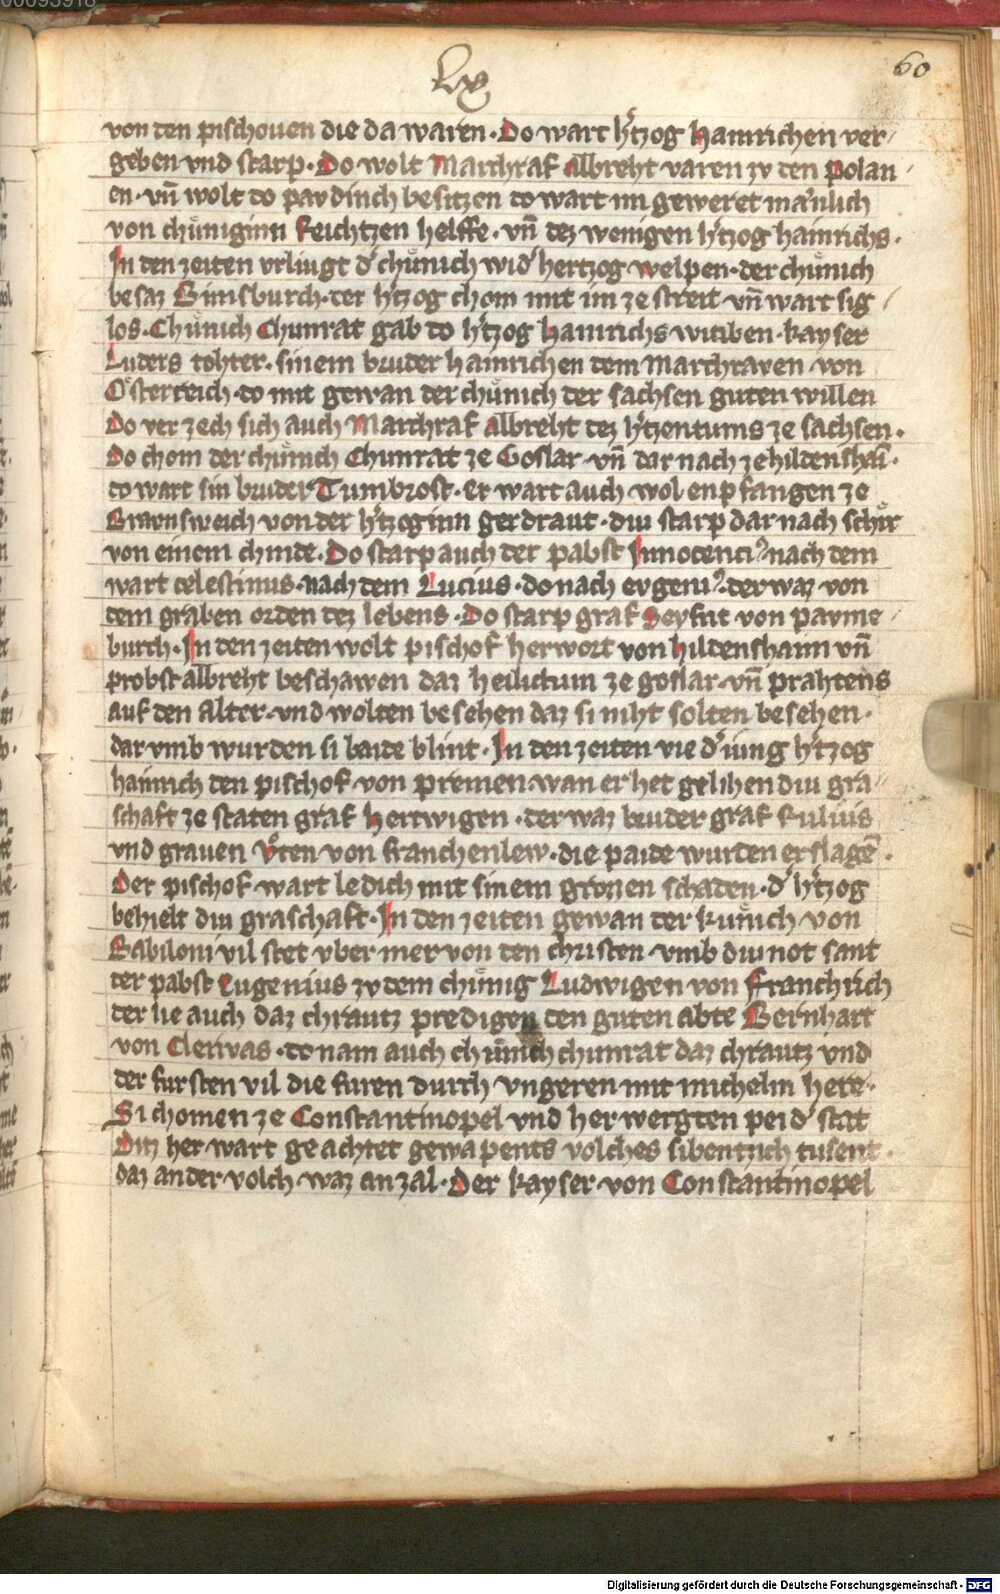 00093918
lx
60
von den pischouen die da waren · Do wart h'tzog Hainrichen ver/
geben vnd starp · Do wolt Marchraf Albreht varen zv den Polan/
en · vn̄ wolt do pavdinch besitzen do wart im geweret mānlich
von chůniginn Reichtzen helffe · vn̄ dez wenigen h'tzog hainrichs ·
In den zeiten vrliugt d' chůnich wid' hertzog welpen · der chůnich
besaz Binsburch · der h'tzog chom mit im ze streit vn̄ wart sig/
los · Chůnich Chunrat gab do h'tzog Hainrichs witiben · kayser
Luders tohter · sinem bruder hainrichen dem Marchraven von
Osterreich · do mit gewan der chůnich der sachsen guten willen
Do verzech sich auch Marchraf Albreht dez h'tzentums ze sachsen ·
Do chom der chůnich Chunrat ze Goslar · vn̄ dar nach ze hildenshaī ·
do wart sin bruder Tumbrost · Er wart auch wol enpfangen ze
Brawnsweich von der h'tzoginn gerdraut · diu starp dar nach schir
von einem chinde · Do starp auch der pabst Innocenci9 nach dem
wart celestinus · nach dem Lucius · do nach evgeni9 · der waz von
dem graben orden dez lebens · Do starp graf Seyfrit von payme/
burch · In den zeiten wolt pischof herwort von hildenshaim vn̄
probst albreht beschawen daz heilictum ze goslar · vn̄ prahtens
auf den Alter · vnd wolten besehen daz si niht solten besehen ·
dar vmb wurden si baide blint · In den zeiten vie d' iung h'tzog
hainrich den pischof von premen · wan er het gelihen diu gra/
schaft ze staten graf hertwigen · der waz bruder graf Rulius
vnd grauen Vͦten von franchenlew · die paide wurden erslagē ·
Der pischof wart ledich mit sinem grozen schaden · d' h'tzog
behielt diu graschaft · In den zeiten gewan der kůnich von
Babiloni vil stet vber mer von den christen · vmb diu not sant
der pabst Eugenius zv dem chůnig Ludwigen von Franchrich
der lie auch daz chrautz predigen den guten abte Bernhart
von Clerivas · do nam auch chůnich chunrat daz chrautz vnd
der fursten vil die furen durch vngeren mit michelm here ·
Si chomen ze Constantinopel vnd herwergten peid' stat
Ditz her wart geachtet gewapents volches sibentzich tusent ·
daz ander volch waz an zal · Der kayser von Constantinopel
Digitalisierung gefördert durch die Deutsche Forschungsgemeinschaft - DFG